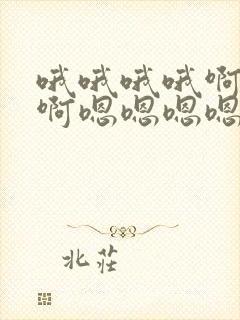 哦哦哦哦啊
啊嗯嗯嗯嗯
北莊